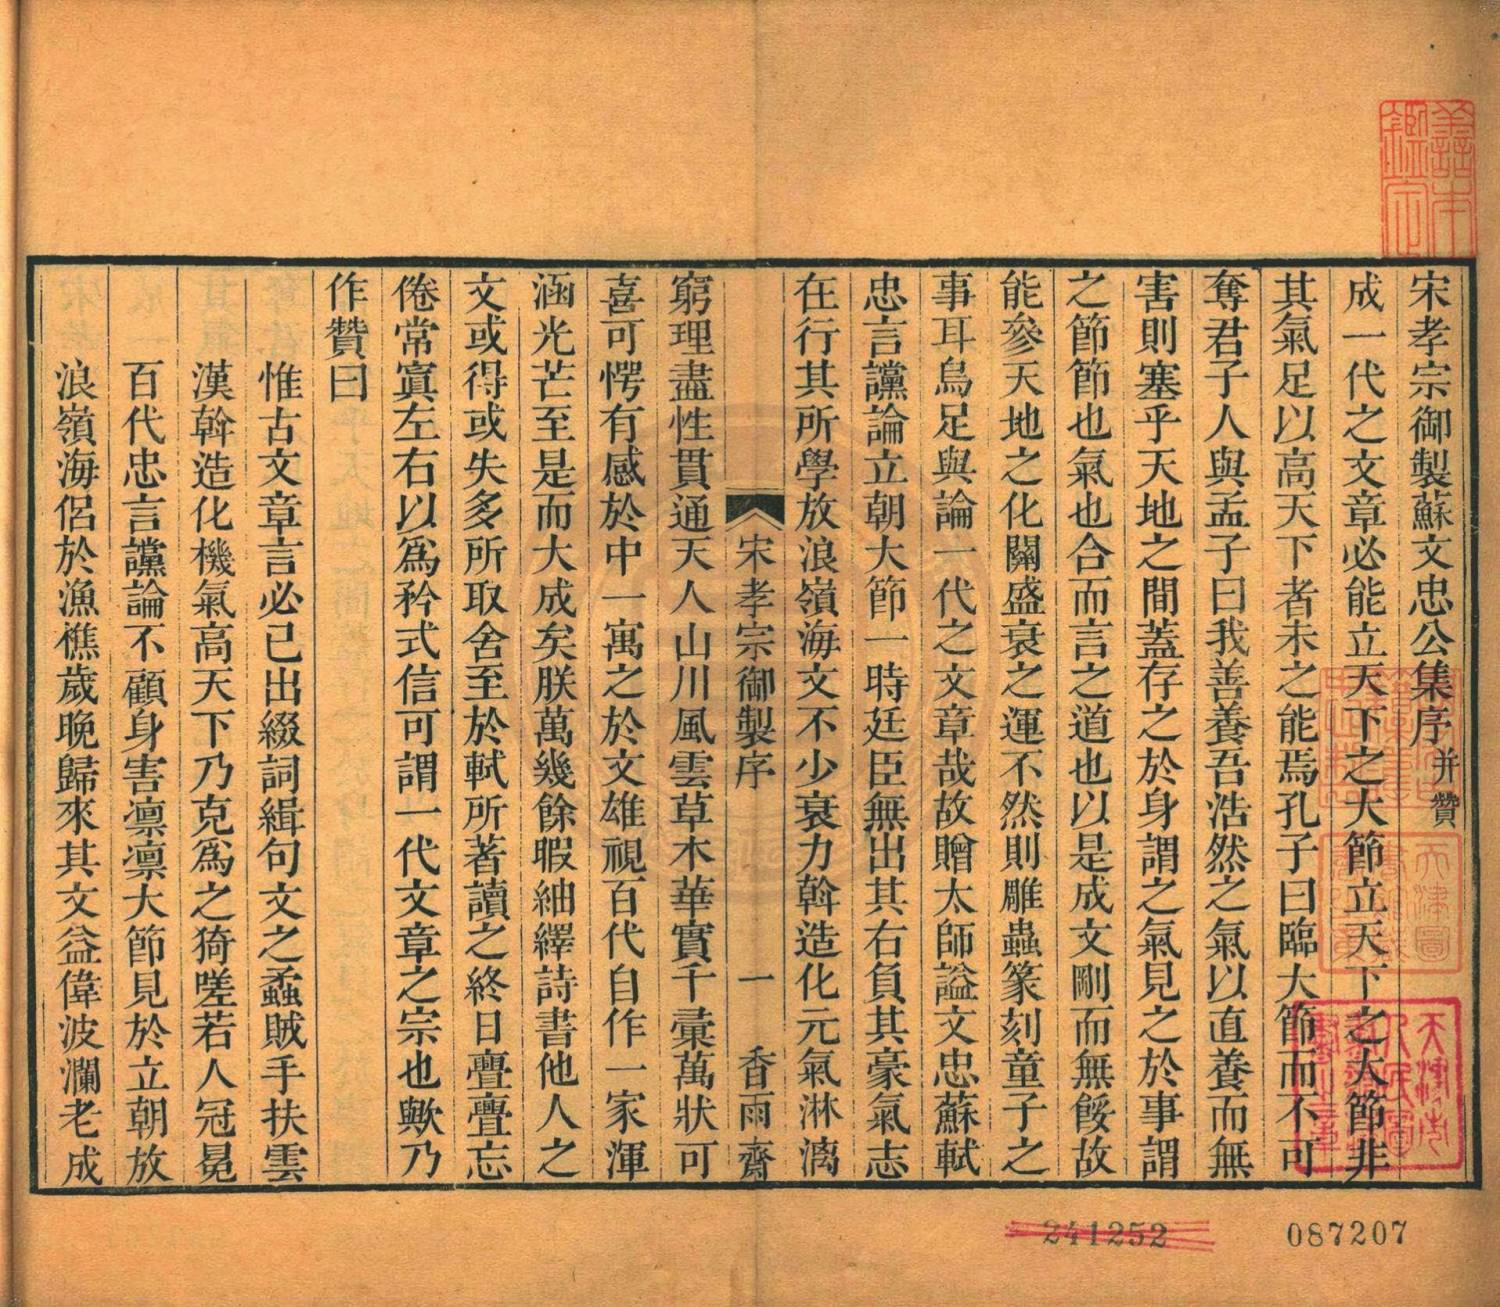 宋孝宗御製蘇文忠公集序并贊
成一代之文章必能立天下之大節立天下之大節非
其氣足以高天下者未之能焉孔子曰臨大節而不可
奪君子人與孟子曰我善養吾浩然之氣以直養而無
害則塞乎天地之間蓋存之於身謂之氣見之於事謂
之節節也氣也合而言之道也以是成文剛而無餒故
能參天地之化關盛衰之運不然則雕蟲篆刻童子之
事耳烏足與論一代之文章哉故贈太師謚文忠蘇軾
忠言讜論立朝大節一時廷臣無出其右負其豪氣志
在行其所學放浪嶺海文不少衰力斡造化元氣淋漓
宋孝宗御製序 一 香雨齋
窮理盡性貫通天人山川風雲草木華實千彙萬狀可
喜可愕有感於中一寓之於文雄視百代自作一家渾
涵光芒至是而大成矣朕萬幾餘暇紬繹詩書他人之
文或得或失多所取舍至於軾所著讀之終日亹亹忘
倦常寘左右以為矜式信可謂一代文章之宗也歟乃
作贊曰
惟古文章言必己出綴詞緝句文之蟊賊手扶雲
漢斡造化機氣高天下乃克為之猗嗟若人冠冕
百代忠言讜論不顧身害凛凛大節見於立朝放
浪嶺海侶於漁樵歲晚歸來其文益偉波瀾老成
善本鑑定
241252
087207